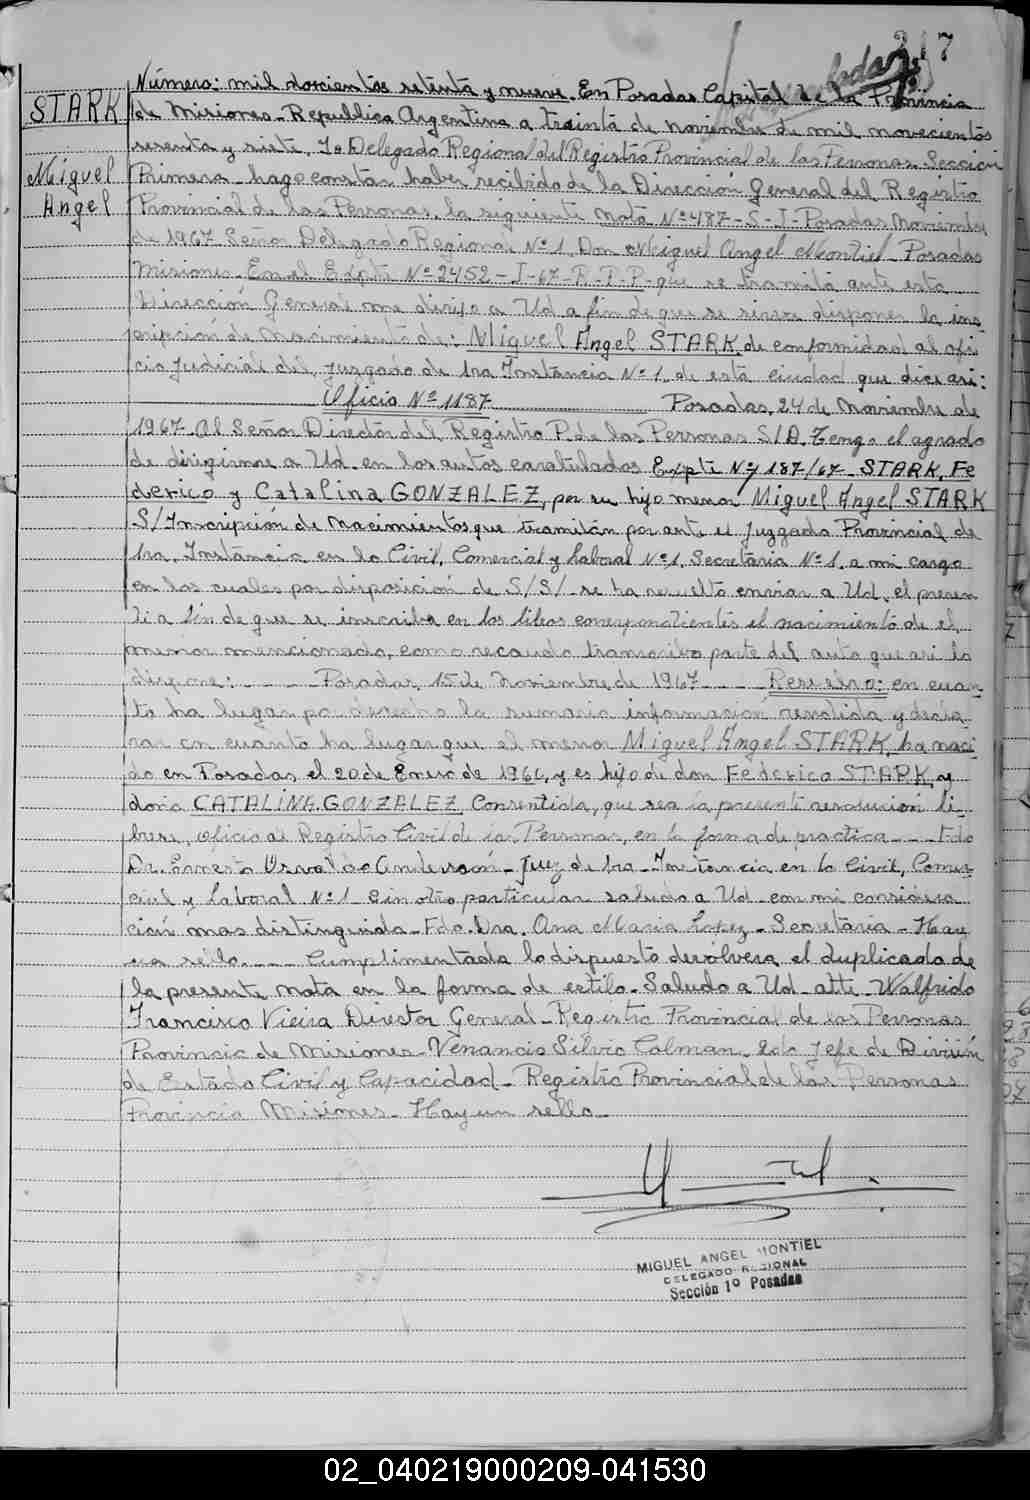 317
STARK
Miguel
Angel
Número: mil doscientos setenta y nueve. En Posadas Capital de la Provincia
de Misiones - Republica Argentina a treinta de noviembre de mil novecientos
sesenta y siete, Yo Delegado Regional del Registro Provincial de las Personas Sección
Primera - hago constar haber recibido de la Dirección General del Registro
Provincial de las Personas, la siguiente nota Nº 487 - S - I - Posadas Noviembre
de 1967 Señor Delegado Regional Nº 1. Don Miguel Angel Montiel - Posadas
Misiones - En el Expte Nº 2452 - I - 67 - R - P - P - que se tramita ante esta
Dirección General me dirijo a Ud a fin de que se sirva disponer la ins-
cripción de nacimiento de: Miguel Angel STARK, de conformidad al ofi
cio Judicial del Juzgado de 1ra Instancia Nº 1, de esta ciudad que dice asi:
Oficio Nº 1187 Posadas, 24 de Noviembre de
1967. Al Señor Director del Registro P. de las Personas S/D. Tengo el agrado
de dirigirme a Ud. en los autos caratulados Expte Nº 1187/67 - STARK, Fe
derico y Catalina GONZALEZ, por su hijo menor Miguel Angel STARK
S/ Inscripción de nacimientos que tramitan por ante el Juzgado Provincial de
1ra. Instancia en lo Civil, Comercial y Laboral Nº 1, Secretaria Nº 1, a mi cargo
en los cuales por disposición de S/S/ - se ha resuelto enviar a Ud, el presen
te a fin de que se inscriba en los libros correspondientes el nacimiento de el
menor mencionado, como recaudo transcribo parte del auto que asi lo
dispone: - Posadas, 15 de Noviembre de 1967 - Resuelvo: en cuan
to ha lugar por derecho la sumaria información rendida y decla
rar en cuanto ha lugar que el menor Miguel Angel STARK, ha naci
do en Posadas el 20 de Enero de 1961, y es hijo de don Federico STARK y
doña CATALINA GONZALEZ, Consentida, que sea la presente resolución li
brese, oficio al Registro Civil de las Personas, en la forma de practica - Fdo
Dr. Ernesto Osvaldo Anderson - Juez de 1ra - Instancia en lo Civil, Comer-
cial y Laboral Nº 1 - Sin otro particular saludo a Ud con mi considera
ción mas distinguida - Fdo. Dra. Ana Maria Lopez - Secretaria - Hay
un sello. - Cumplimentada lo dispuesto devolvera el duplicado de
la presente nota en la forma de estilo - Saludo a Ud - atte - Walfrido
Francisco Vieira Director General - Registro Provincial de las Personas
Provincia de Misiones - Venancio Silvio Colman - 2do Jefe de División
de Estado Civil y Capacidad - Registro Provincial de las Personas
Provincia Misiones - Hay un sello -
MIGUEL ANGEL MONTIEL
DELEGADO REGIONAL
Sección 1º Posadas
02_040219000209-041530